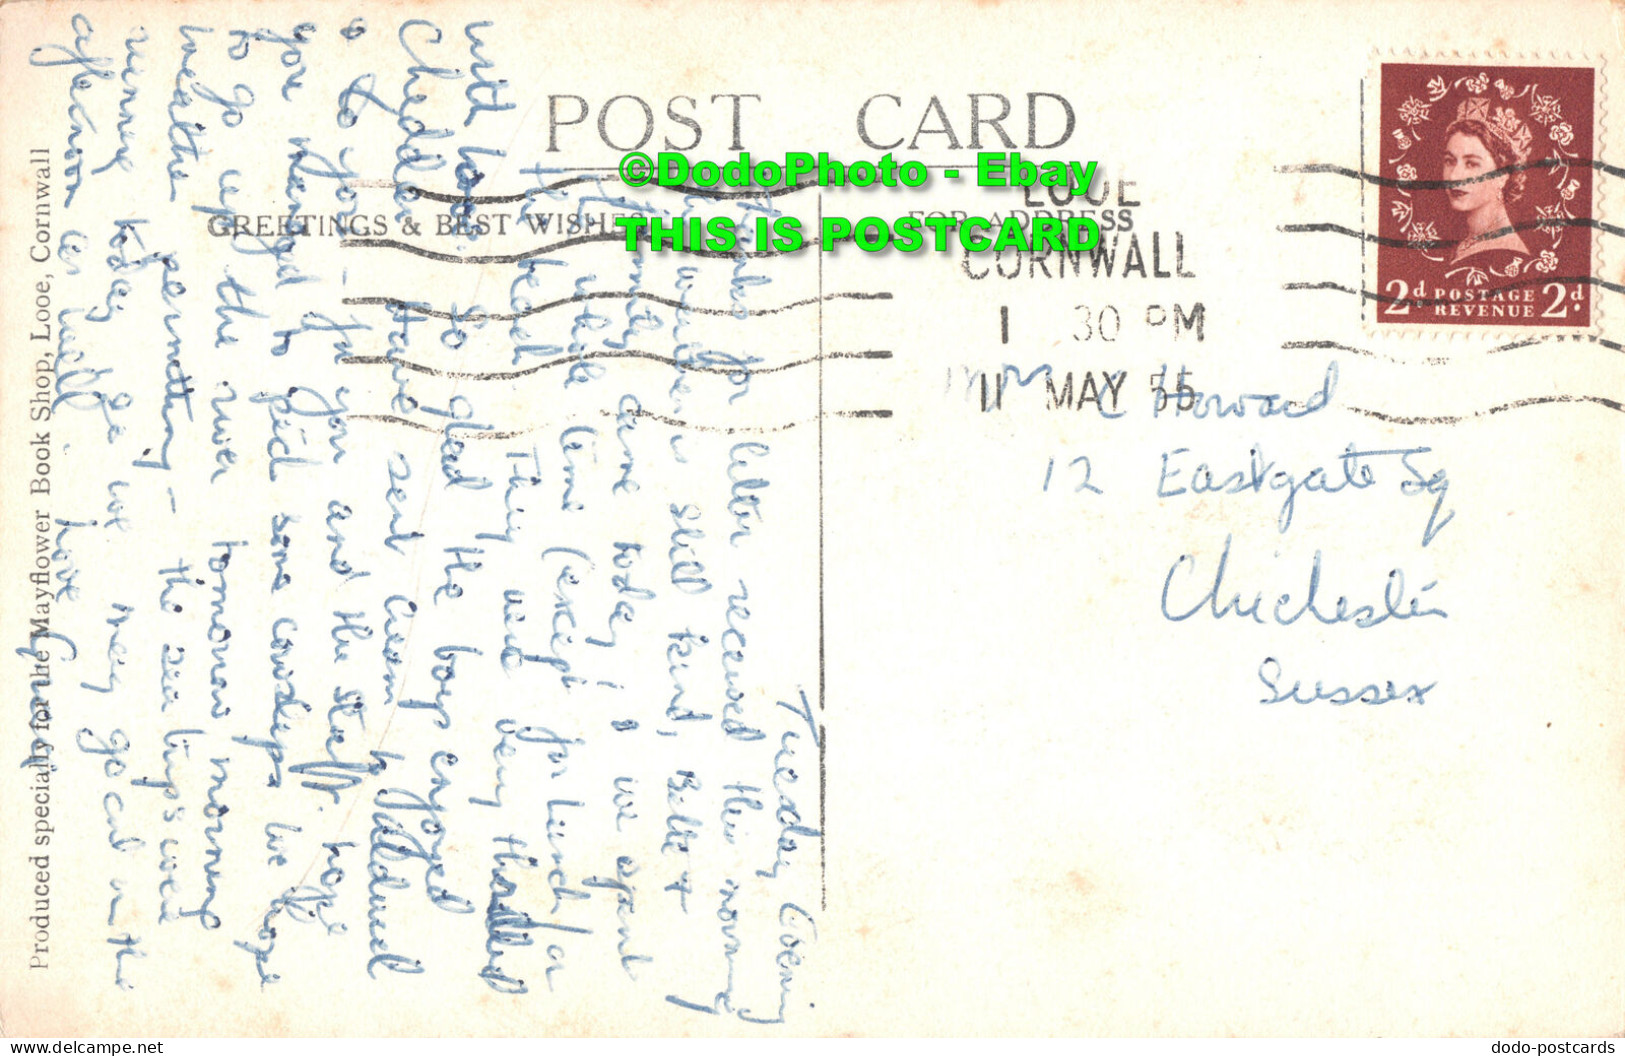 POST CARD
©DodoPhoto - Ebay
THIS IS POSTCARD
GREETINGS & BEST WISHES
FOR ADDRESS
LOOE
CORNWALL
1 30 PM
11 MAY 55
2d POSTAGE 2d
REVENUE
Howard
12 Eastgate Sq
Chichester
Sussex
Tuesday Evening
Thanks for letter received this morning
weather is still kind, Betty &
Jimmy came today & we spent
the whole time (except for lunch) on
the beach. They were very thrilled
with home. So glad the boys enjoyed
Cheddar. Have sent cream to Mildred
& to you - for you and the staff. hope
you manged to find some cowslips. We hope
to go up the river tomorrow morning
weather permitting - the sea trip's were
running today so we may go out in the
afternoon as well. love
Produced specially for the Mayflower Book Shop, Looe, Cornwall
dodo-postcards